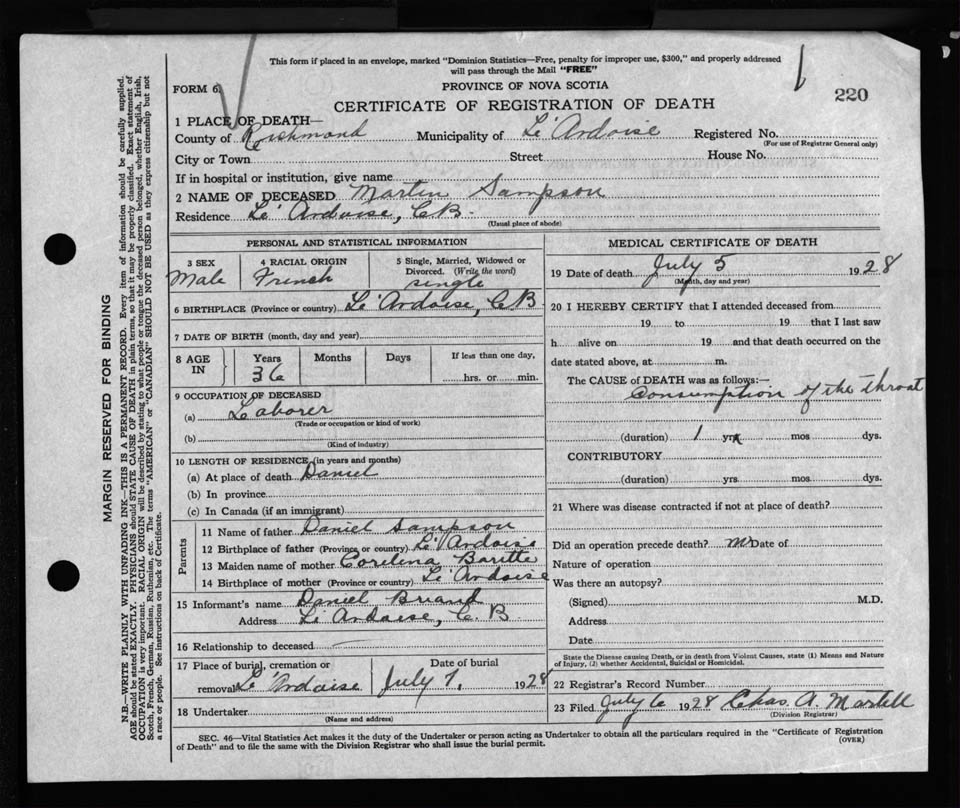 This form if placed in an envelope, marked "Dominion Statistics—Free, penalty for improper use, $300," and properly addressed
will pass through the Mail "FREE"
FORM 6.
PROVINCE OF NOVA SCOTIA
220
CERTIFICATE OF REGISTRATION OF DEATH
1 PLACE OF DEATH—
County of Richmond Municipality of Le' Ardoise Registered No.
(For use of Registrar General only)
City or Town Street House No.
If in hospital or institution, give name
2 NAME OF DECEASED Martin Sampson
Residence Le' Ardoise, C.B.
(Usual place of abode)
PERSONAL AND STATISTICAL INFORMATION
3 SEX 4 RACIAL ORIGIN 5 Single, Married, Widowed or
Divorced. (Write the word)
Male French single
6 BIRTHPLACE (Province or country) Le' Ardoise, C B
7 DATE OF BIRTH (month, day and year)
8 AGE IN Years Months Days If less than one day,
36 hrs. or min.
9 OCCUPATION OF DECEASED
(a) Laborer
(Trade or occupation or kind of work)
(b)
(Kind of industry)
10 LENGTH OF RESIDENCE (in years and months)
(a) At place of death Daniel
(b) In province
(c) In Canada (if an immigrant)
Parents
11 Name of father Daniel Sampson
12 Birthplace of father (Province or country) Le' Ardoise
13 Maiden name of mother Corelina Barette
14 Birthplace of mother (Province or country) Le' Ardoise
15 Informant's name Daniel Briand
Address Le' Ardoise, C. B.
16 Relationship to deceased
17 Place of burial, cremation or Date of burial
removal Le' Ardoise July 7, 1928
18 Undertaker
(Name and address)
MEDICAL CERTIFICATE OF DEATH
19 Date of death July 5 1928
(Month, day and year)
20 I HEREBY CERTIFY that I attended deceased from
19 to 19 that I last saw
h alive on 19 and that death occurred on the
date stated above, at m.
The CAUSE OF DEATH was as follows:—
Consumption of the throat
(duration) 1 yrs. mos dys.
CONTRIBUTORY
(duration) yrs. mos. dys.
21 Where was disease contracted if not at place of death?
Did an operation precede death? Date of
Nature of operation
Was there an autopsy?
(Signed) M.D.
Address
Date
State the Disease causing Death, or in death from Violent Causes, state (1) Means and Nature
of Injury, (2) whether Accidental, Suicidal or Homicidal.
22 Registrar's Record Number
23 Filed July 6 1928 Chas. A. Martell
(Division Registrar)
SEC. 46—Vital Statistics Act makes it the duty of the Undertaker or person acting as Undertaker to obtain all the particulars required in the "Certificate of Registration
of Death" and to file the same with the Division Registrar who shall issue the burial permit.
(OVER)
MARGIN RESERVED FOR BINDING
N.B.—WRITE PLAINLY WITH UNFADING INK—THIS IS A PERMANENT RECORD. Every item of information should be carefully supplied.
AGE should be stated EXACTLY. PHYSICIANS should STATE CAUSE OF DEATH in plain terms, so that it may be properly classified. Exact statement of
OCCUPATION is very important. RACIAL ORIGIN will be described by stating to what people or tongue the deceased person belonged, whether English, Irish,
Scotch, French, German, Russian, Ruthenian, etc. The terms "AMERICAN" or "CANADIAN" SHOULD NOT BE USED as they express citizenship but not
a race or people. See instructions on back of Certificate.